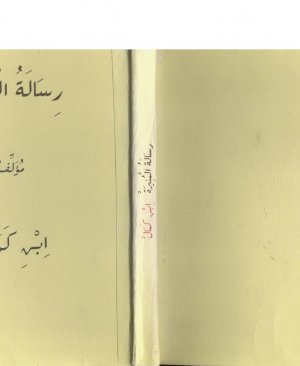 رِسَالَةُ ال
مُؤَلِّف
اِبْنِ كَ
رِسَالَةُ الْمُنِيرَةُ اِبْنِ كَمَال